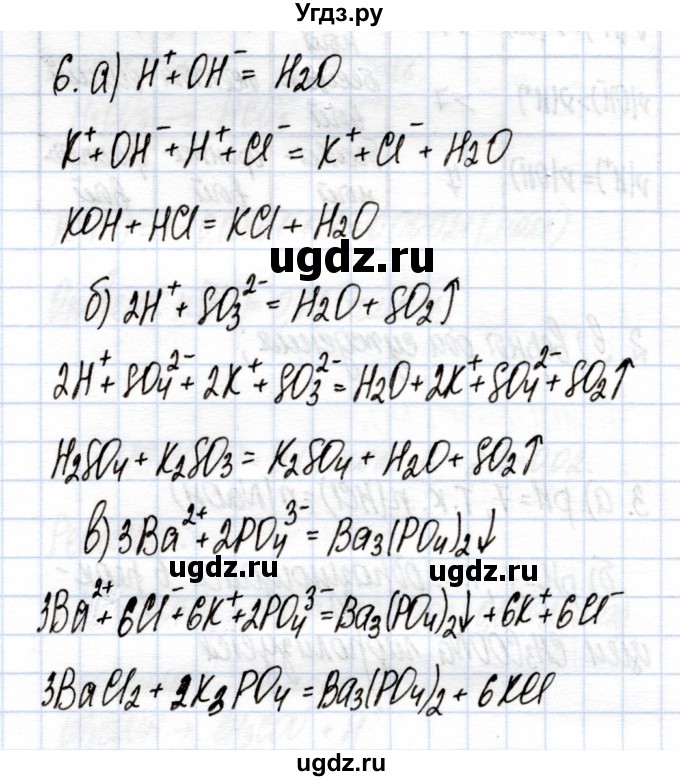 Угдз.ру
6. а) H⁺ + OH⁻ = H₂O
K⁺ + OH⁻ + H⁺ + Cl⁻ = K⁺ + Cl⁻ + H₂O
KOH + HCl = KCl + H₂O
ugdz.ru
ugdz.ru
б) 2H⁺ + SO₃²⁻ = H₂O + SO₂↑
2H⁺ + SO₄²⁻ + 2K⁺ + SO₃²⁻ = H₂O + 2K⁺ + SO₄²⁻ + SO₂↑
H₂SO₄ + K₂SO₃ = K₂SO₄ + H₂O + SO₂↑
в) 3Ba²⁺ + 2PO₄³⁻ = Ba₃(PO₄)₂↓
ugdz.ru ugdz.ru
3Ba²⁺ + 6Cl⁻ + 6K⁺ + 2PO₄³⁻ = Ba₃(PO₄)₂↓ + 6K⁺ + 6Cl⁻
3BaCl₂ + 2K₃PO₄ = Ba₃(PO₄)₂ + 6KCl
ugdz.ru